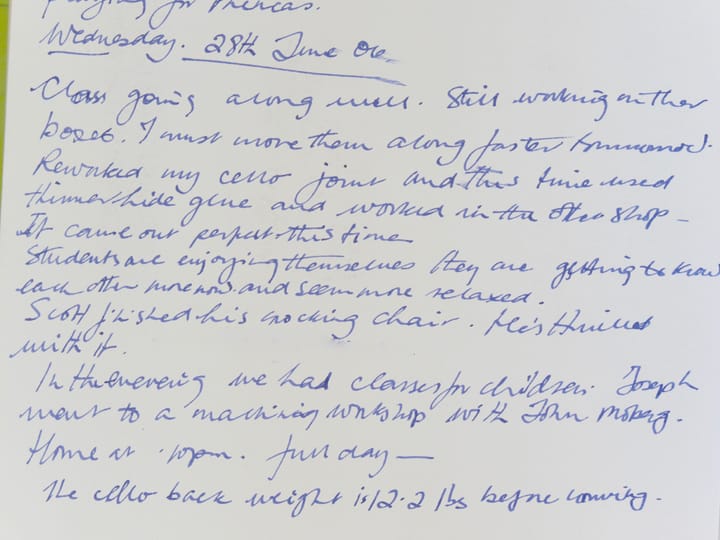 praying for Phineas.
Wednesday. 28th June 06
Class going along well. Still working on their
boxes. I must move them along faster tommorrow.
Reworked my cello joint and this time used
thinner hide glue and worked in the other shop –
It came out perfect this time
Students are enjoying themselves they are getting to know
each other more now and seem more relaxed.
Scott finished his rocking chair. He's thrilled
with it.
In the evening we had classes for children. Joseph
went to a machining workshop with John Moberg.
Home at 10pm. full day —
The cello back weight is 12.2 lbs before carving.